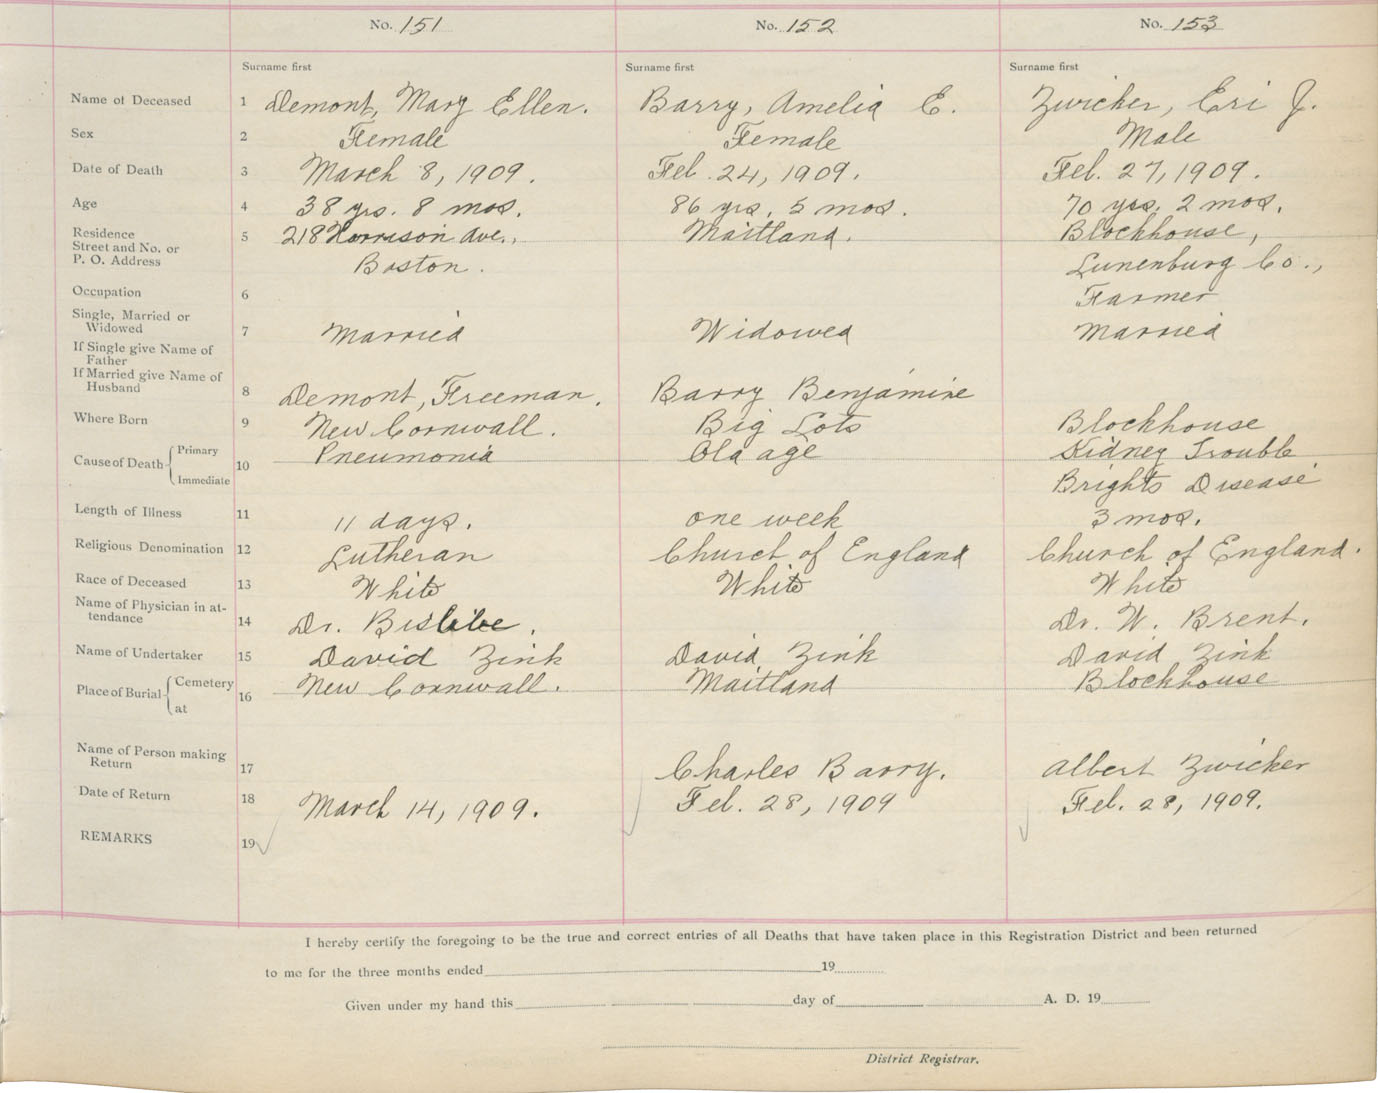 No. 151 No. 152 No. 153
Surname first Surname first Surname first
Name of Deceased 1 Demont, Mary Ellen. Barry, Amelia E. Zwicker, Eri J.
Sex 2 Female Female Male
Date of Death 3 March 8, 1909. Feb. 24, 1909. Feb. 27, 1909.
Age 4 38 yrs. 8 mos. 86 yrs, 5 mos. 70 yrs, 2 mos.
Residence 5 218 Harrison Ave., Maitland. Blockhouse,
Street and No. or
P. O. Address Boston. Lunenburg Co.,
Occupation 6 Farmer
Single, Married or
Widowed 7 Married Widowed Married
If Single give Name of
Father
If Married give Name of
Husband 8 Demont, Freeman. Barry Benjamine
Where Born 9 New Cornwall. Big Lots Blockhouse
Cause of Death Primary 10 Pneumonia Old age Kidney Trouble
Immediate Brights Disease
Length of Illness 11 11 days. one week 3 mos.
Religious Denomination 12 Lutheran Church of England Church of England.
Race of Deceased 13 White White White
Name of Physician in at-
tendance 14 Dr. Dr. W. Brent.
Name of Undertaker 15 David Zink David Zink David Zink
Place of Burial Cemetery 16 New Cornwall. Maitland Blockhouse
at
Name of Person making
Return 17 Charles Barry. Albert Zwicker
Date of Return 18 March 14, 1909. Feb. 28, 1909 Feb. 28, 1909.
REMARKS 19
I hereby certify the foregoing to be the true and correct entries of all Deaths that have taken place in this Registration District and been returned
to me for the three months ended 19
Given under my hand this day of A. D. 19
District Registrar.